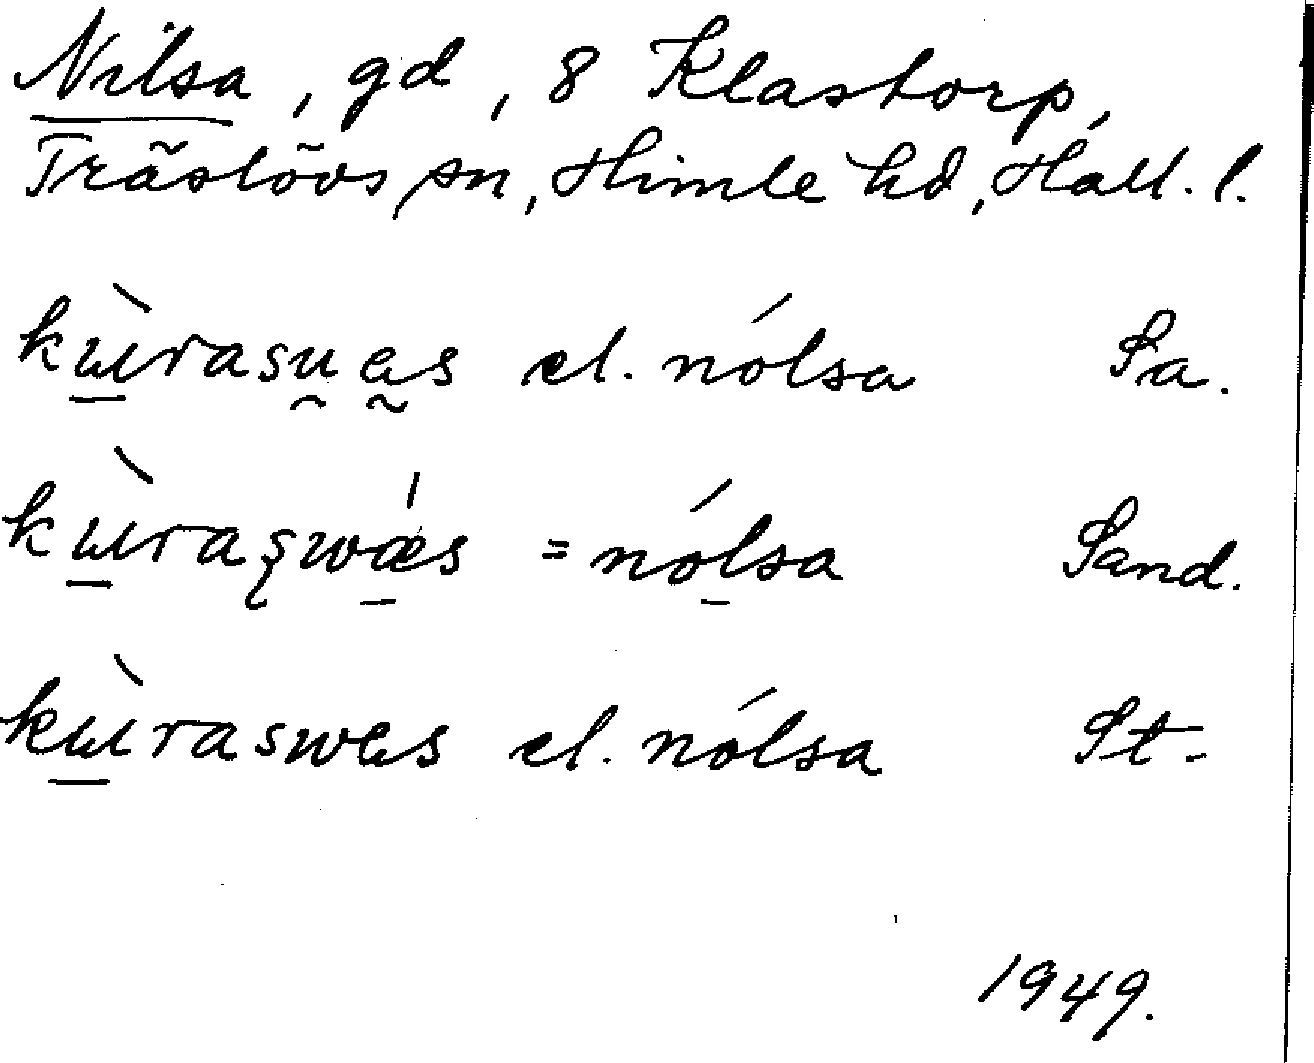 Nilsa, gd, 8 Klastorp,
Träslövs sn, Himle hd, Hall. l.
kɯ̱̀rasu̯æ̰s el. nólsa Sa.
kɯ̱̀raʂwǽ̱s = nó̱lsa Sand.
kɯ̱̀raswæs el. nólsa St.
1949.